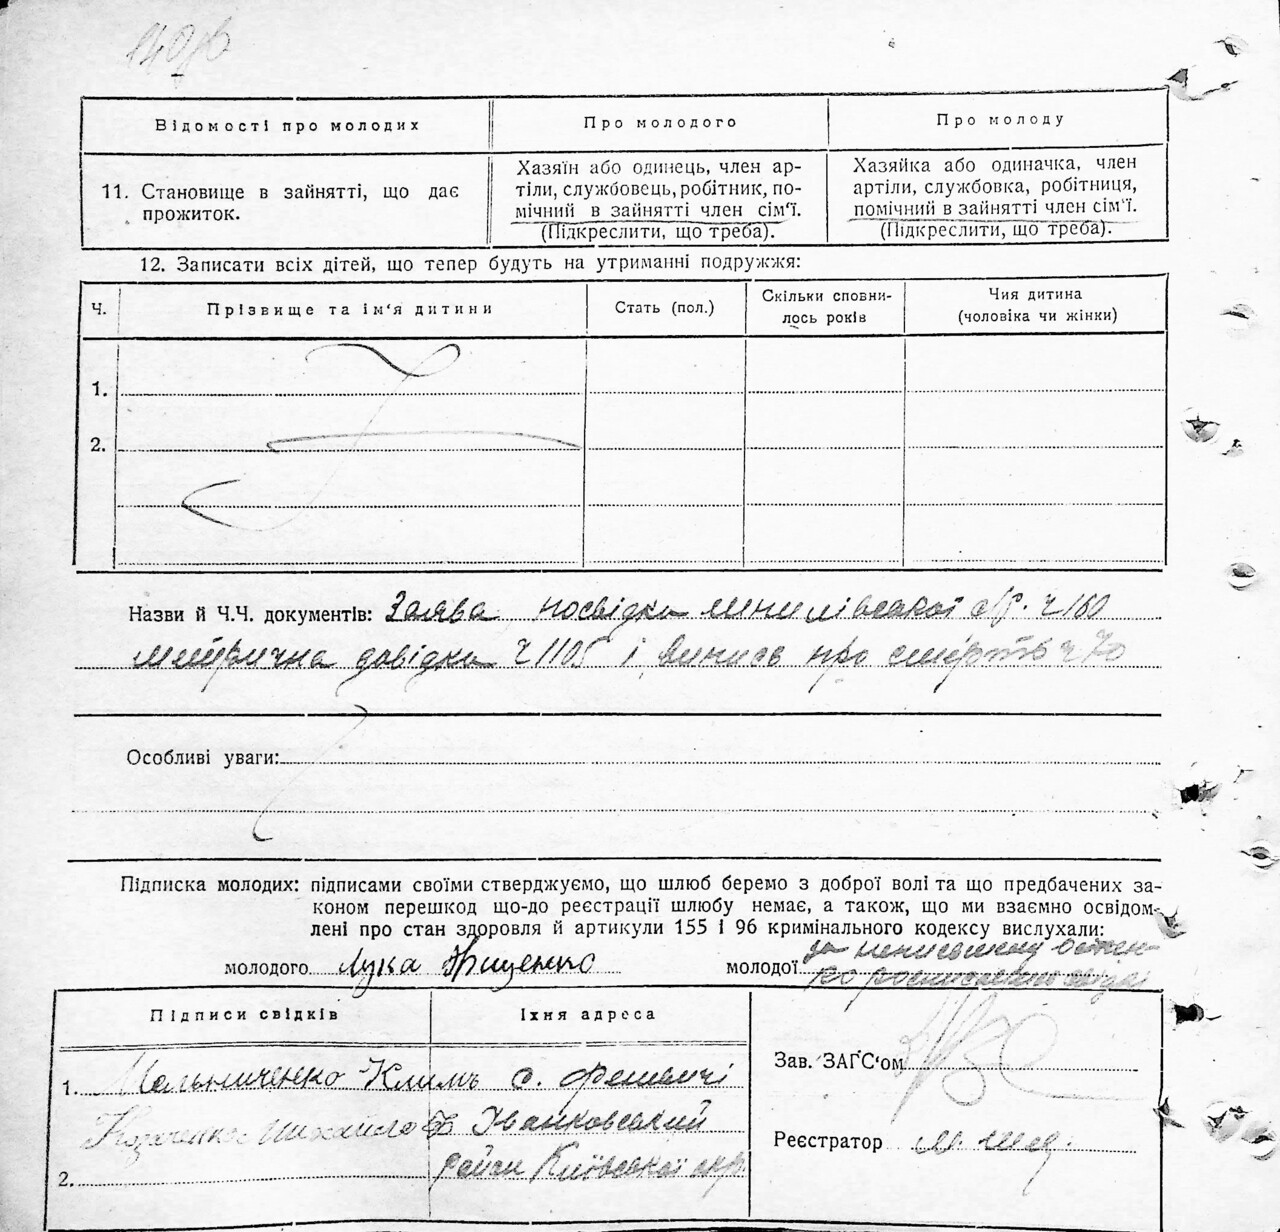 Відомості про молодих
Про молодого
Про молоду
11. Становище в зайнятті, що дає
прожиток.
Хазяїн або одинець, член ар-
тілі, службовець, робітник, по-
мічний в зайнятті член сім'ї.
(Підкреслити, що треба).
Хазяйка або одиначка, член
артілі, службовка, робітниця,
помічний в зайнятті член сім'ї.
(Підкреслити, що треба).
12. Записати всіх дітей, що тепер будуть на утриманні подружжя:
Ч.
Прізвище та ім'я дитини
Стать (пол.)
Скільки сповни-
лось років
Чия дитина
(чоловіка чи жінки)
1.
2.
Назви й Ч.Ч. документів: Заява посвідка с/р. ч 160
метрична довідка ч 1105 і випись про смерть ч 70
Особливі уваги:
Підписка молодих: підписами своїми стверджуємо, що шлюб беремо з доброї волі та що предбачених за-
коном перешкод що-до реєстрації шлюбу немає, а також, що ми взаємно освідом-
лені про стан здоровля й артикули 155 і 96 кримінального кодексу вислухали:
молодого Лука Нищенко
молодої за неписьменну
Підписи свідків
Їхня адреса
1. Мельниченко Климъ с.
Михайло Іванковський
2. район Київської окр.
Зав. ЗАҐС'ом
Реєстратор